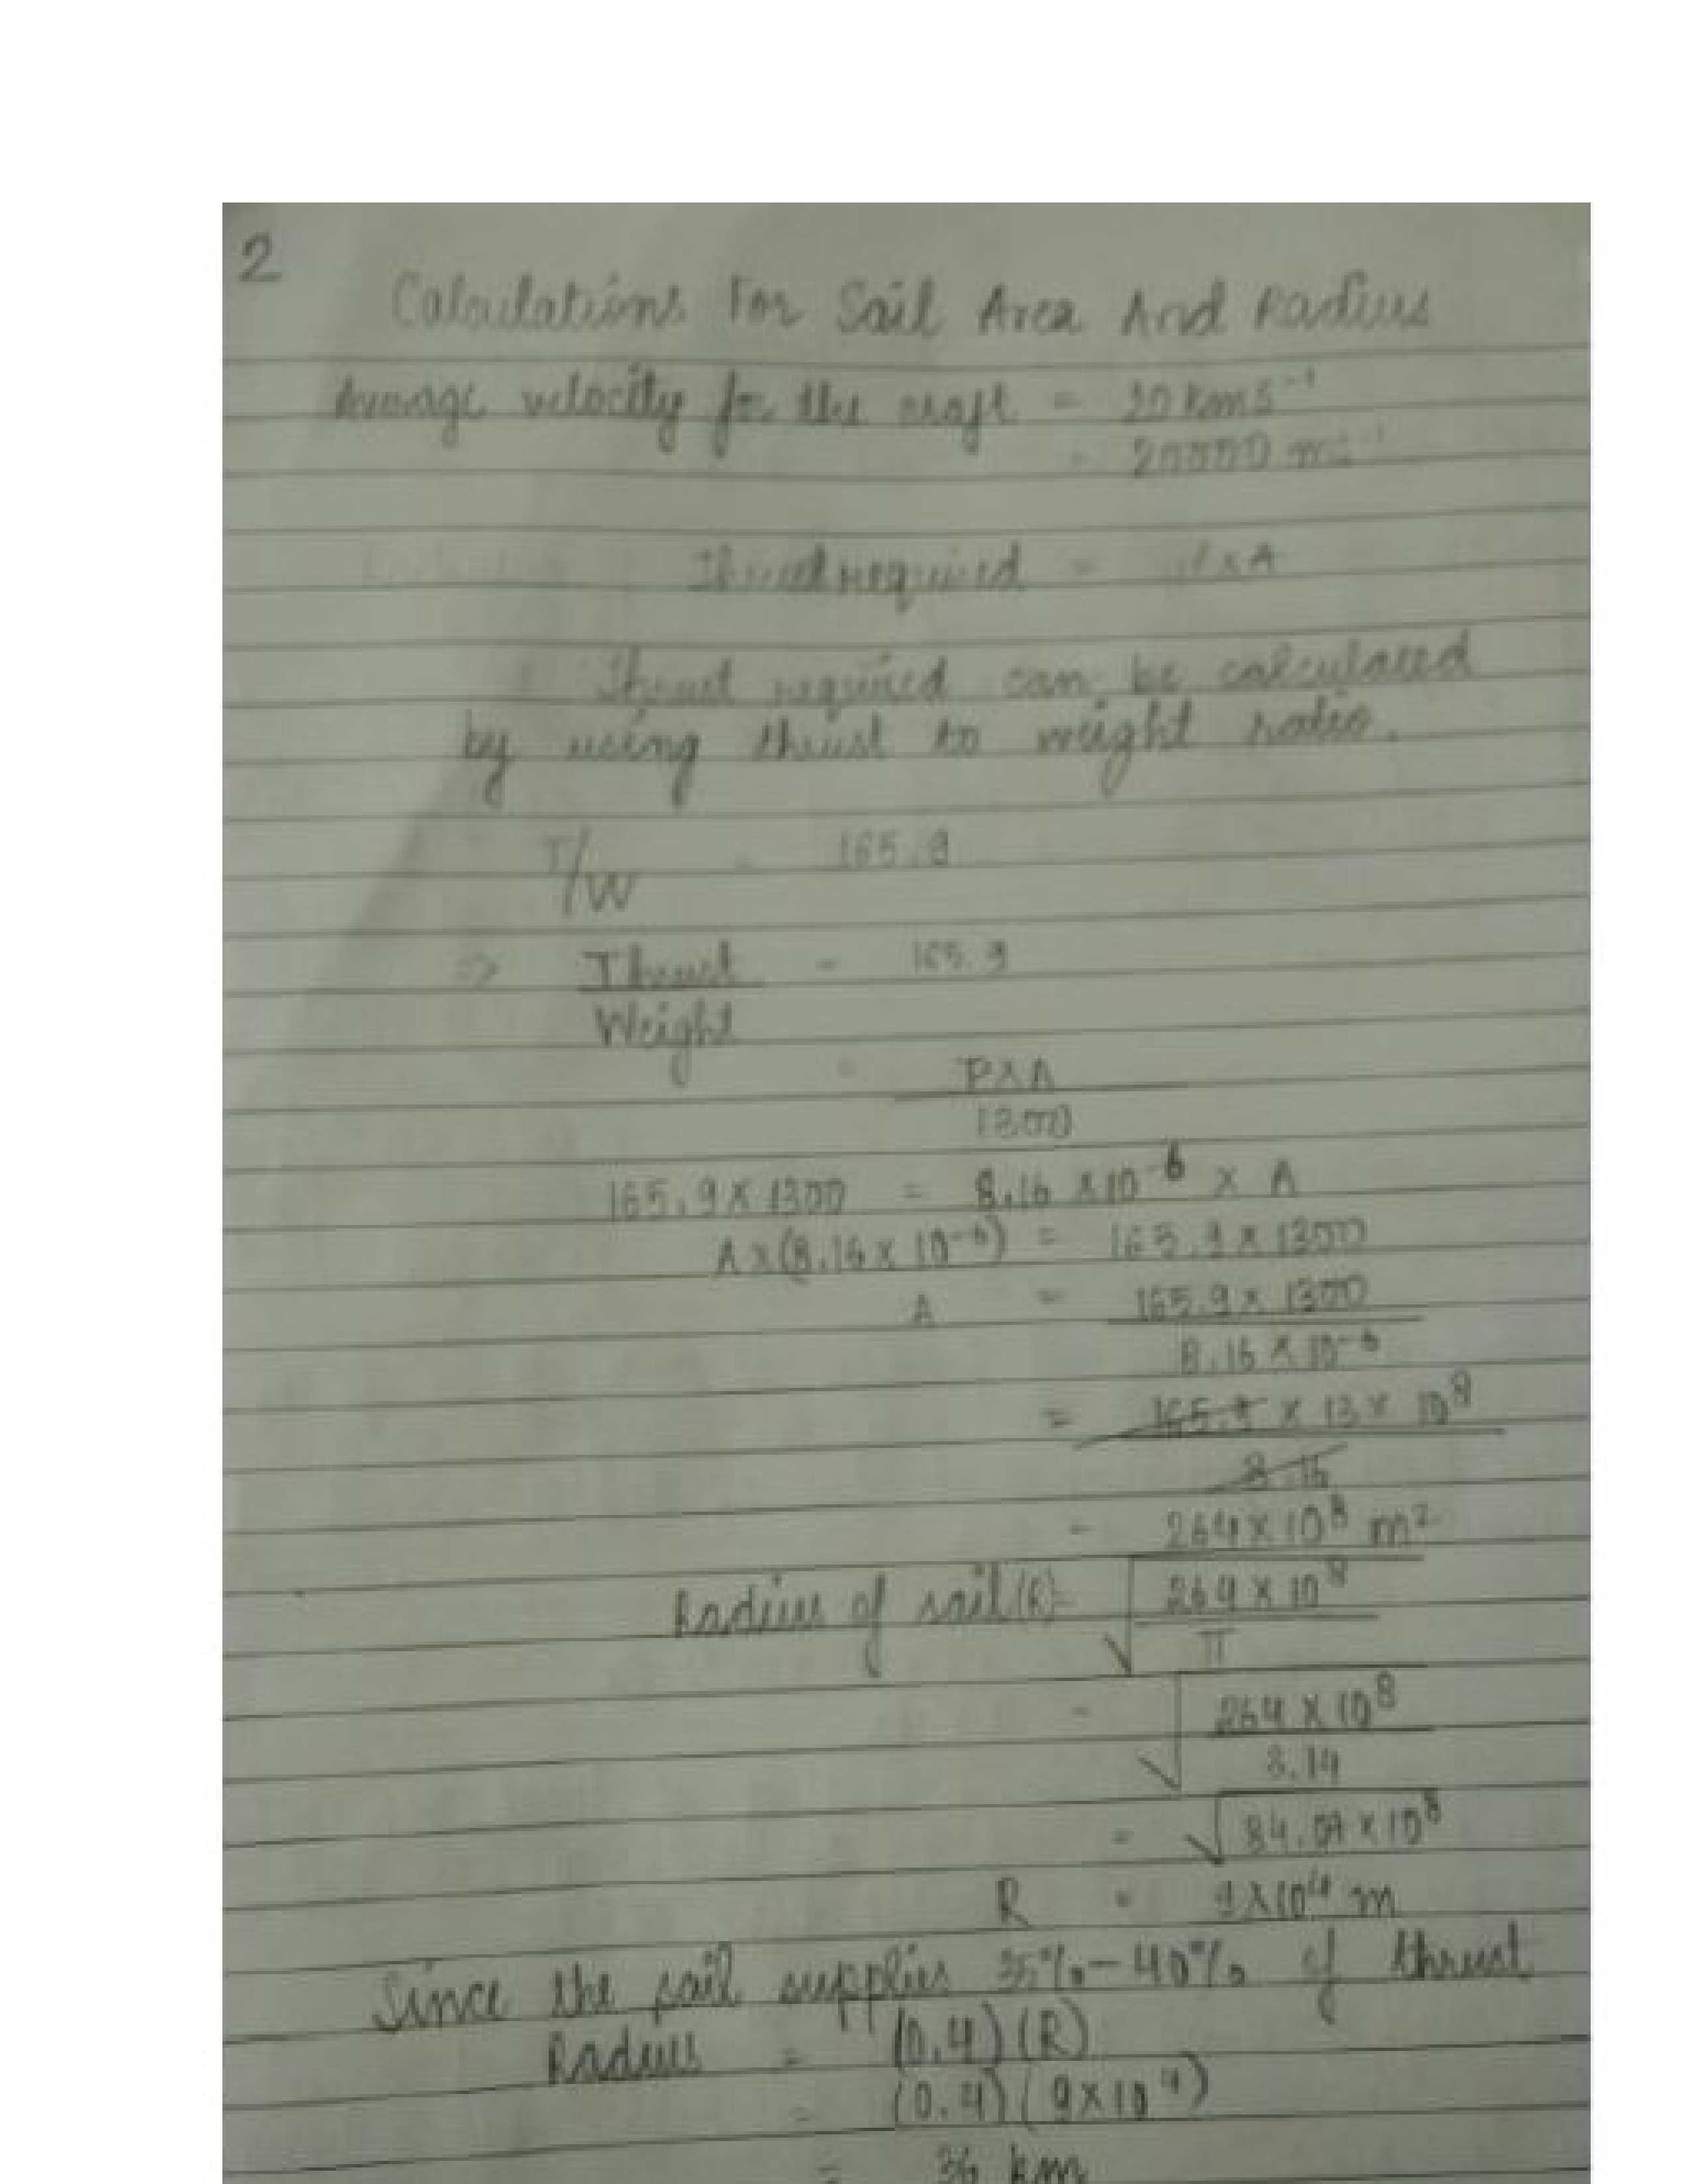 2
Calculations For Sail Area And Radius
Average velocity for the craft = 20 kms⁻¹
= 20000 ms⁻¹
Thrust required = P x A
Thrust required can be calculated
by using thrust to weight ratio.
T/W = 165.9
=> Thrust/Weight = 165.9
= PxA/1300
165.9 x 1300 = 8.16 x 10⁻⁶ x A
A x (8.16 x 10⁻⁶) = 165.9 x 1300
A = 165.9 x 1300/8.16 x 10⁻⁶
= 165.9 x 13 x 10⁸/8.16
= 264 x 10⁸ m²
Radius of sail (R) = √264 x 10⁸/π
= √264 x 10⁸/3.14
= √84.07 x 10⁸
R = 9 x 10⁴ m
Since the sail supplies 35% - 40% of thrust
Radius = (0.4) (R)
= (0.4) (9 x 10⁴)
= 36 km